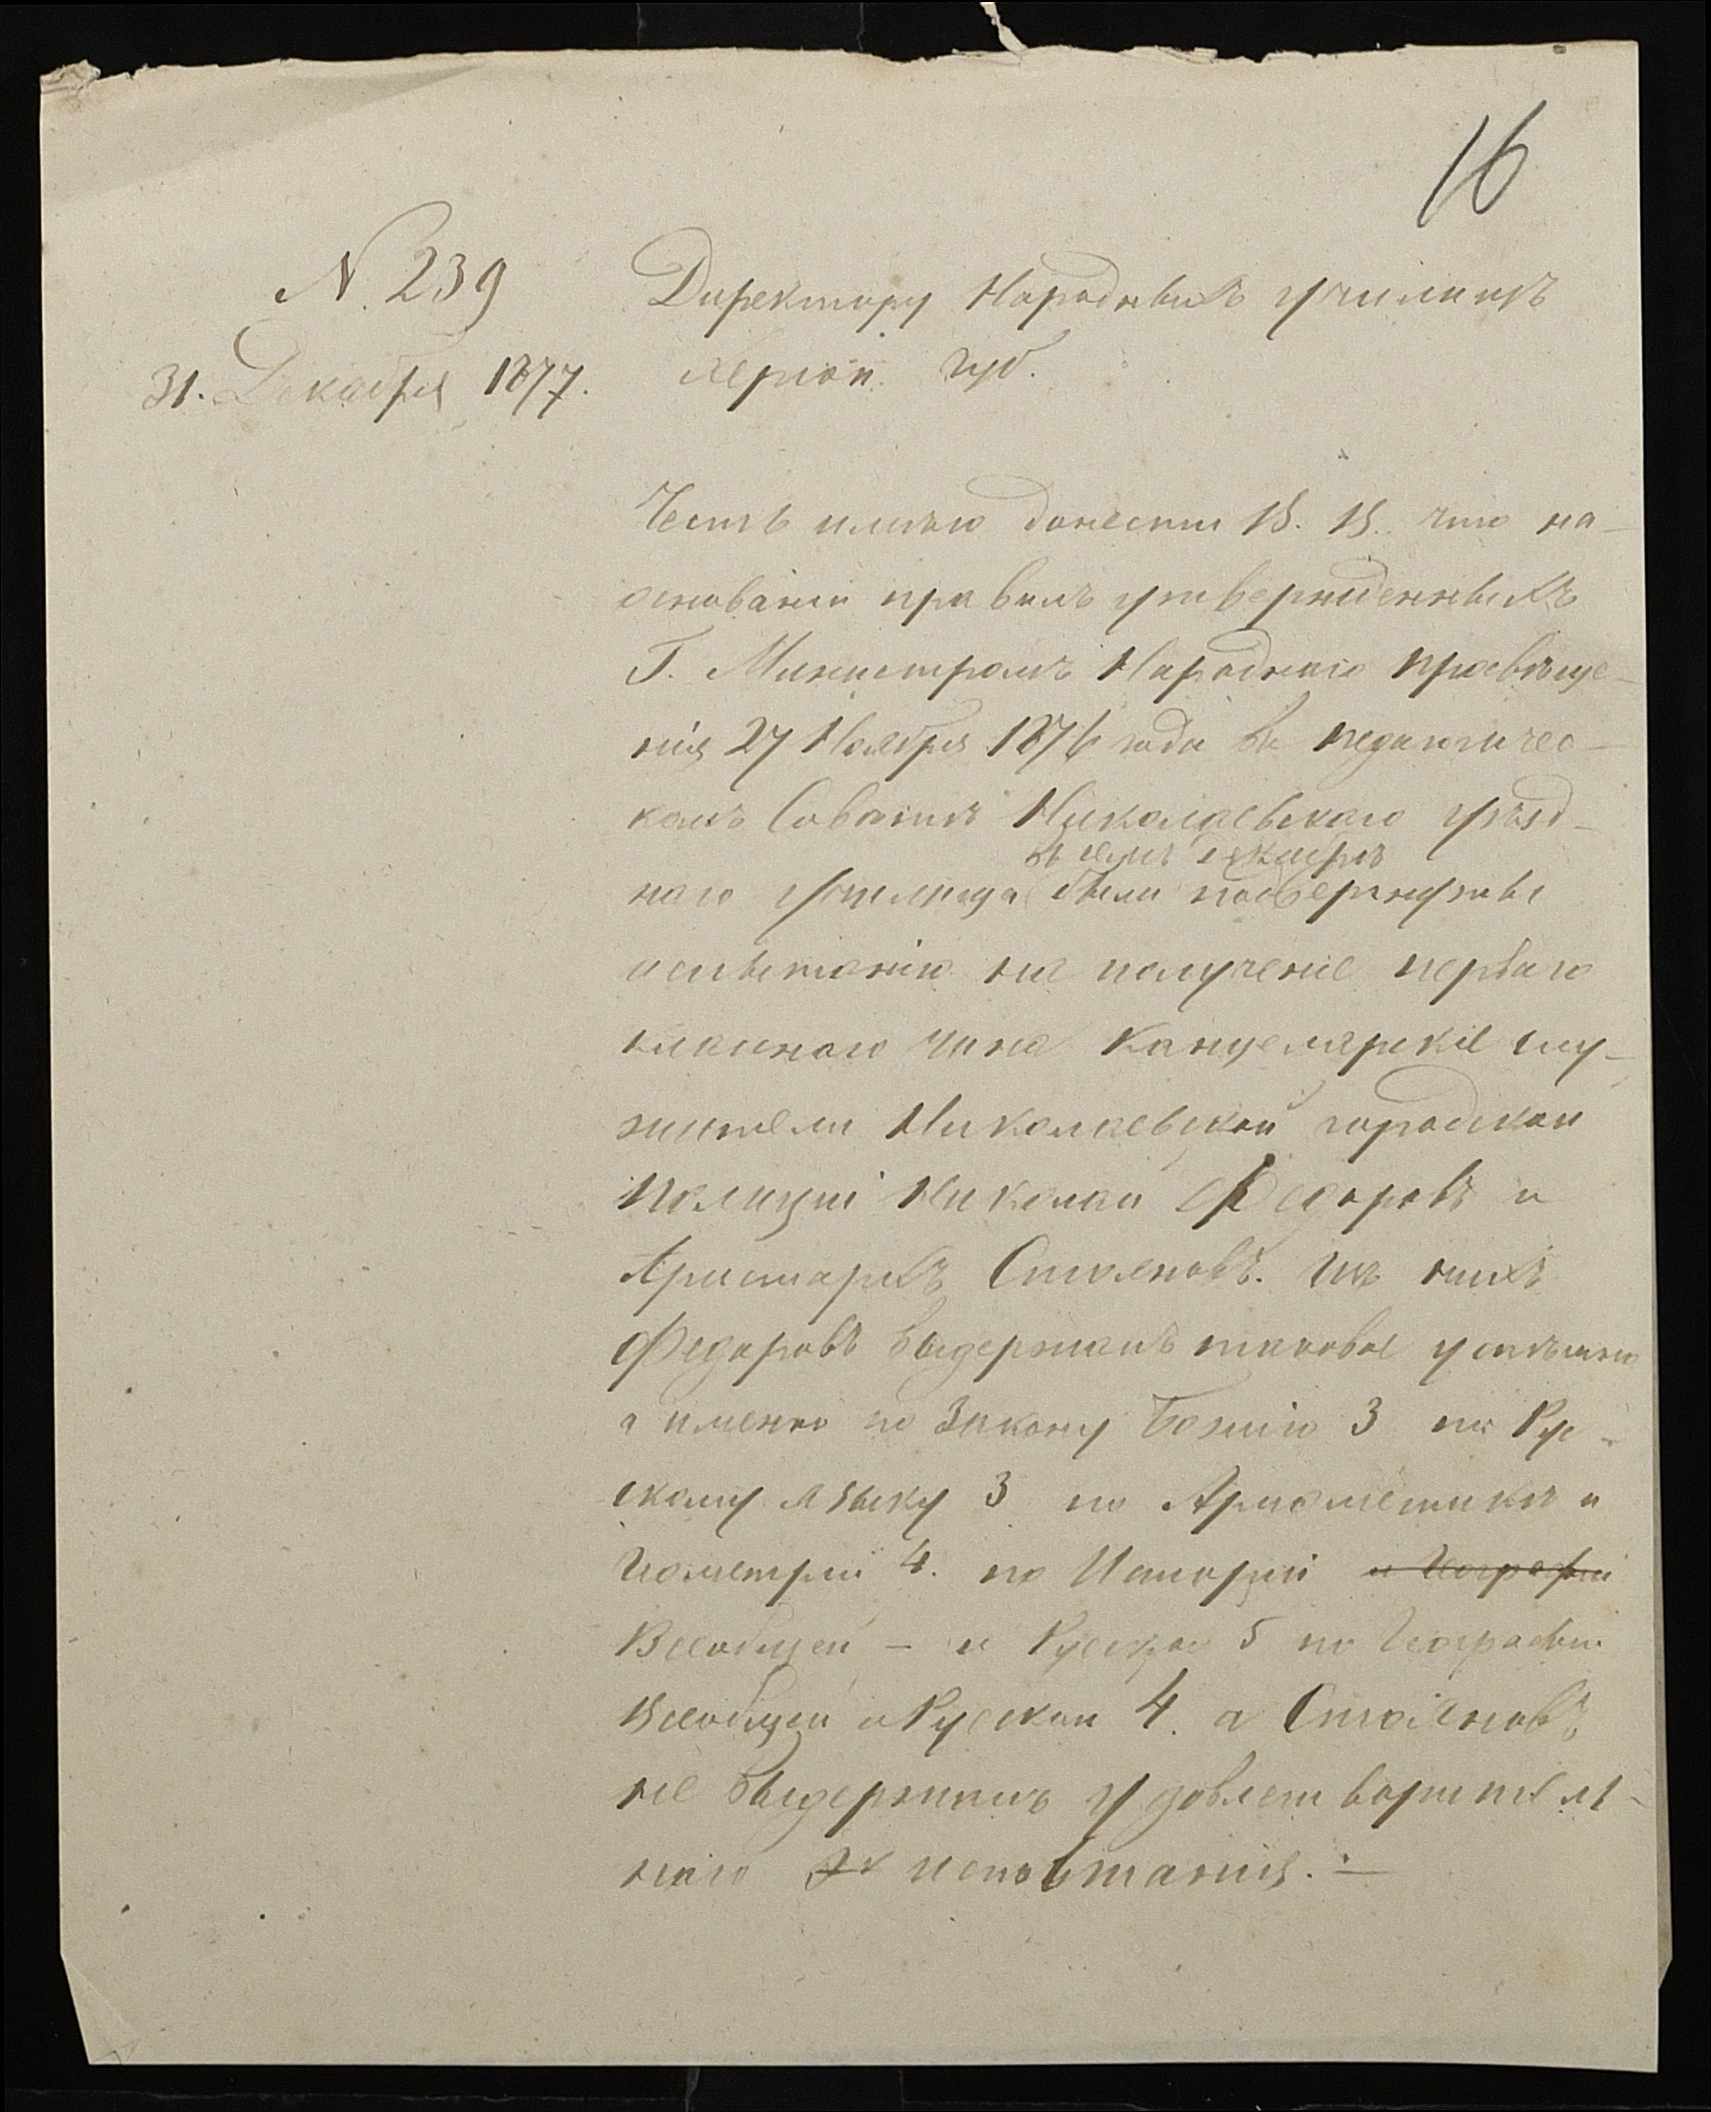 16
N. 239
31. Декабря 1877.
Директору Народныхъ училищъ
Херсон. губ.
Честь имѣю донести В. В. что на
основаніи правилъ утвержденныхъ
Г. Министромъ Народнаго просвѣще-
нія 27 Ноября 1876 года въ педагогичес-
комъ Совѣтѣ Николаевскаго уѣзд-
наго училища были подвергнуты
въ декабрѣ
испытанію на получение перваго
класнаго чина Канцелярские слу-
жители Николаевской городской
полиціи Николай Федоровъ и
Аристархъ Стояновъ. Изъ нихъ
Федоровъ выдержалъ таковое успѣшно
а именно по Закону Божію 3 по Рус-
скому языку 3 по Арифметикѣ и
Геометріи 4. по Исторіи и Географіи
Всеобщей – и Русской 5 по Географіи
Всеобщей и Русской 4. а Стояновъ
не выдержалъ удовлетворитель-
наго испытанія. –